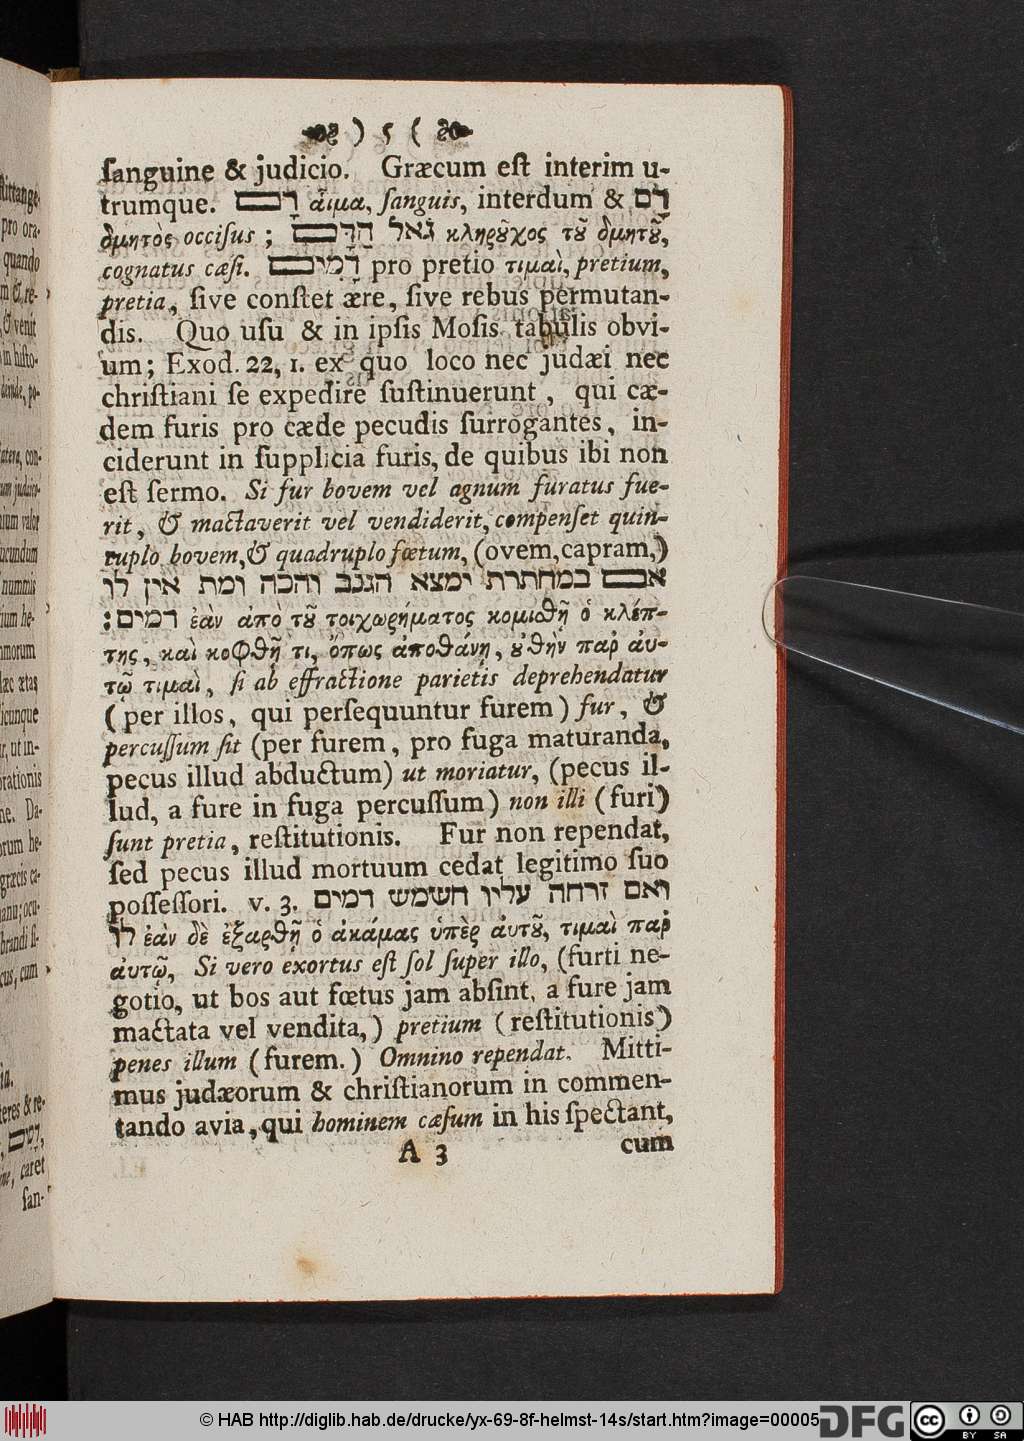 ) 5 (
ſanguine & judicio. Græcum eſt interim u-
trumque. דָם αἷμα, ſanguis, interdum & דָם
δμητὸς occiſus ; גֹאל הַדָּם κληρȣ̃χος τȣ͂ δμητȣ͂,
cognatus cæſi. דָמִים pro pretio τιμαὶ, pretium,
pretia, ſive conſtet ære, ſive rebus permutan-
dis. Quo uſu & in ipſis Moſis tabulis obvi-
um; Exod. 22, 1. ex quo loco nec judæi nec
chriſtiani ſe expedire ſuſtinuerunt , qui cæ-
dem furis pro cæde pecudis ſurrogantes, in-
ciderunt in ſupplicia furis, de quibus ibi non
eſt ſermo. Si fur bovem vel agnum furatus fue-
rit, & mactaverit vel vendiderit, compenſet quin-
tuplo bovem, & quadruplo fœtum, (ovem, capram,)
אם במחתרת ימצא הגנב והכה ומת אין לו
דמים: ἐὰν ἀπὸ τȣ͂ τοιχωρήματος κομιϑῇ ὁ κλέπ-
της, καὶ κοφϑῇ τι, ὅπως ἀποϑάνῃ, ȣϑὴν παρ ἀυ-
τῷ τιμαὶ, ſi ab effractione parietis deprehendatur
(per illos, qui perſequuntur furem) fur, &
percuſſum ſit (per furem, pro fuga maturanda,
pecus illud abductum) ut moriatur, (pecus il-
lud, a fure in fuga percuſſum) non illi (furi)
ſunt pretia, reſtitutionis. Fur non rependat,
ſed pecus illud mortuum cedat legitimo ſuo
poſſeſſori. v. 3. ואם זרחה עליו חשמש דמים
לו ἐὰν δὲ ἐξαρϑῇ ὁ ἀκάμας ὑπὲρ ἀυτȣ͂, τιμαὶ παρ
ἀυτῷ, Si vero exortus eſt ſol ſuper illo, (furti ne-
gotio, ut bos aut fœtus jam abſint, a fure jam
mactata vel vendita,) pretium (reſtitutionis)
penes illum (furem.) Omnino rependat. Mitti-
mus judæorum & chriſtianorum in commen-
tando avia, qui hominem cæſum in his ſpectant,
A 3 cum
© HAB http://diglib.hab.de/drucke/yx-69-8f-helmst-14s/start.htm?image=00005
DFG
cc BY SA